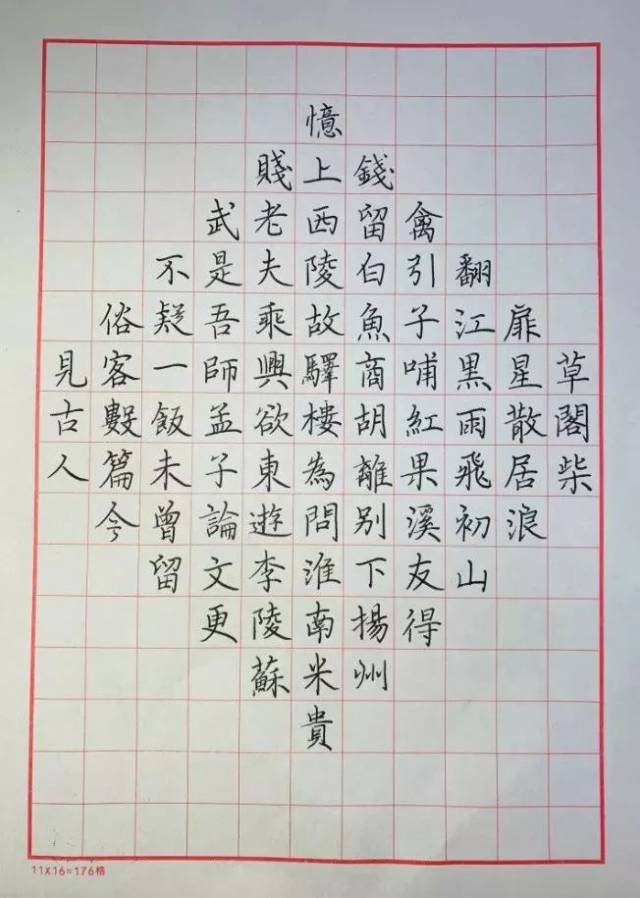 草閣柴
扉星散居浪
翻江黑雨飛初山
禽引子哺紅果溪友得
錢留白魚商胡離別下揚州
憶上西陵故驛樓為問淮南米貴
賤老夫乘興欲東遊李陵蘇
武是吾師孟子論文更
不疑一飯未曾留
俗客數篇今
見古人
11X16=176格